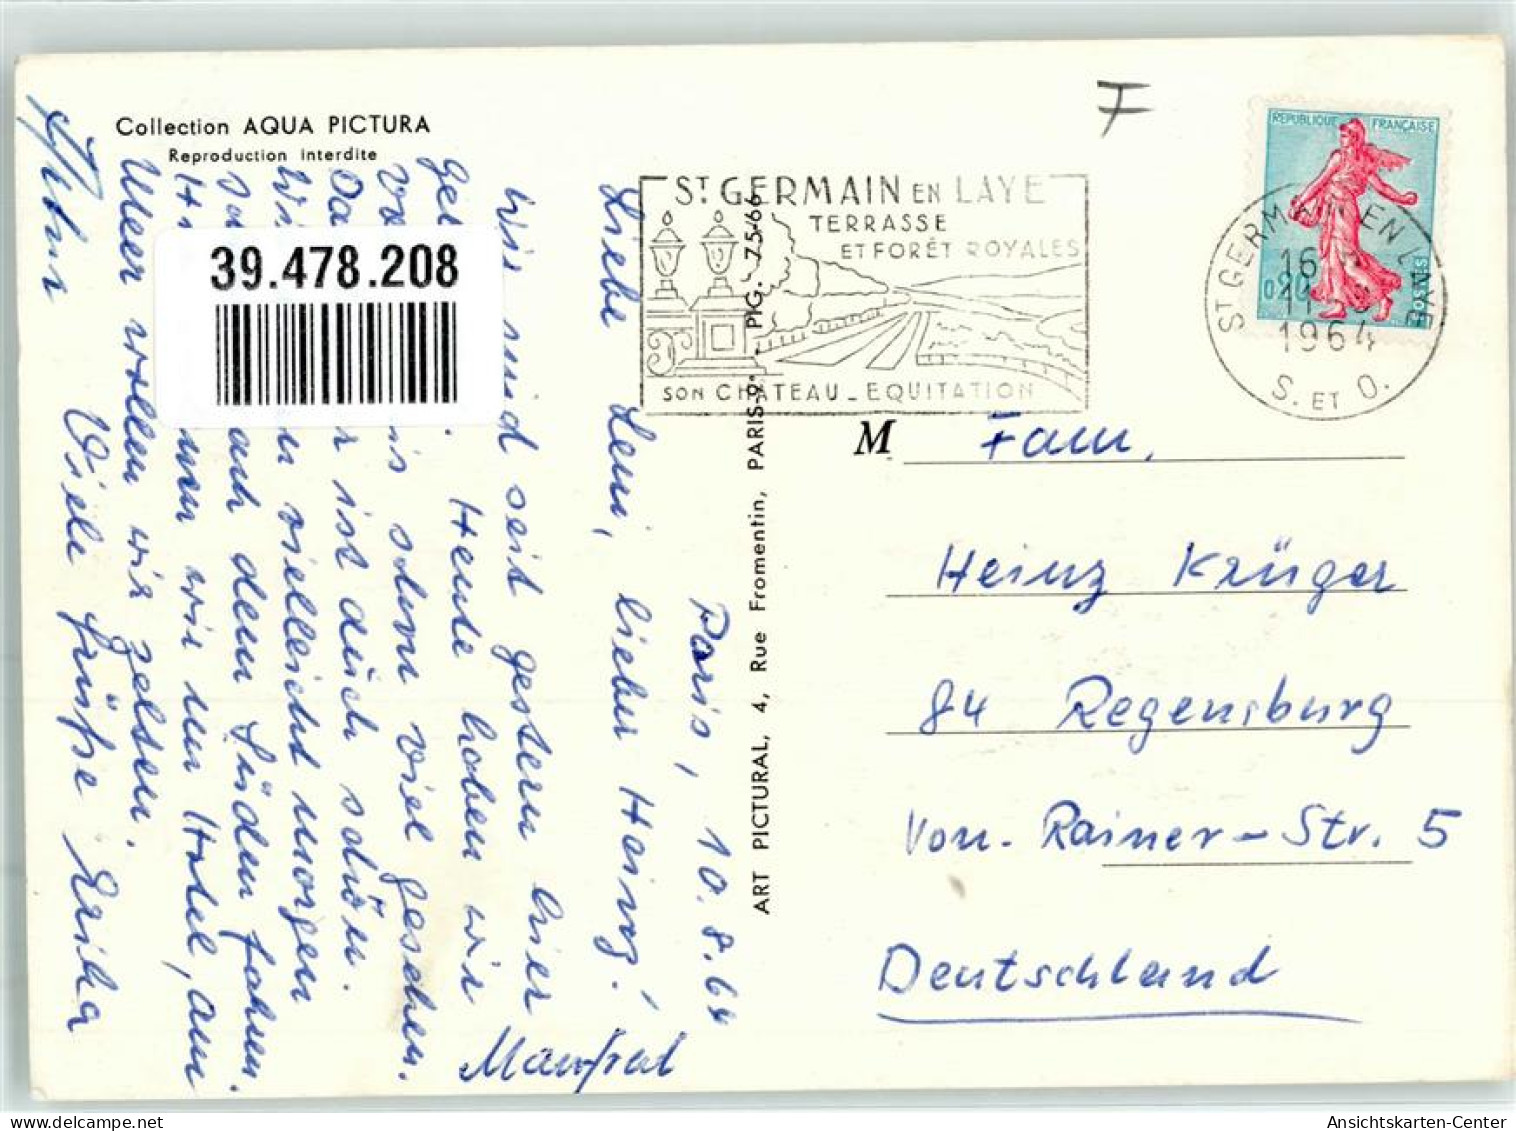 Collection AQUA PICTURA
Reproduction interdite
39.478.208
Paris, 10.8.64
Liebe Leni, lieber Heinz!
Wir sind seit gestern hier
Heute haben wir
schon viel gesehen.
ist auch schön.
vielleicht morgen
dem Süden fahren.
wir im Hotel, am
Meer wollen wir zelten.
Viele Grüße Erika
Manfred
ART PICTURAL, 4, Rue Fromentin, PARIS-9e - PIG. 75/66
ST GERMAIN EN LAYE
TERRASSE
ET FORÊT ROYALES
SON CHATEAU_EQUITATION
F
REPUBLIQUE FRANÇAISE
0,20
POSTES
ST GERMAIN EN LAYE
16
1964
S. ET O.
M Fam.
Heinz Krüger
84 Regensburg
Von-Rainer-Str. 5
Deutschland
Ansichtskarten-Center